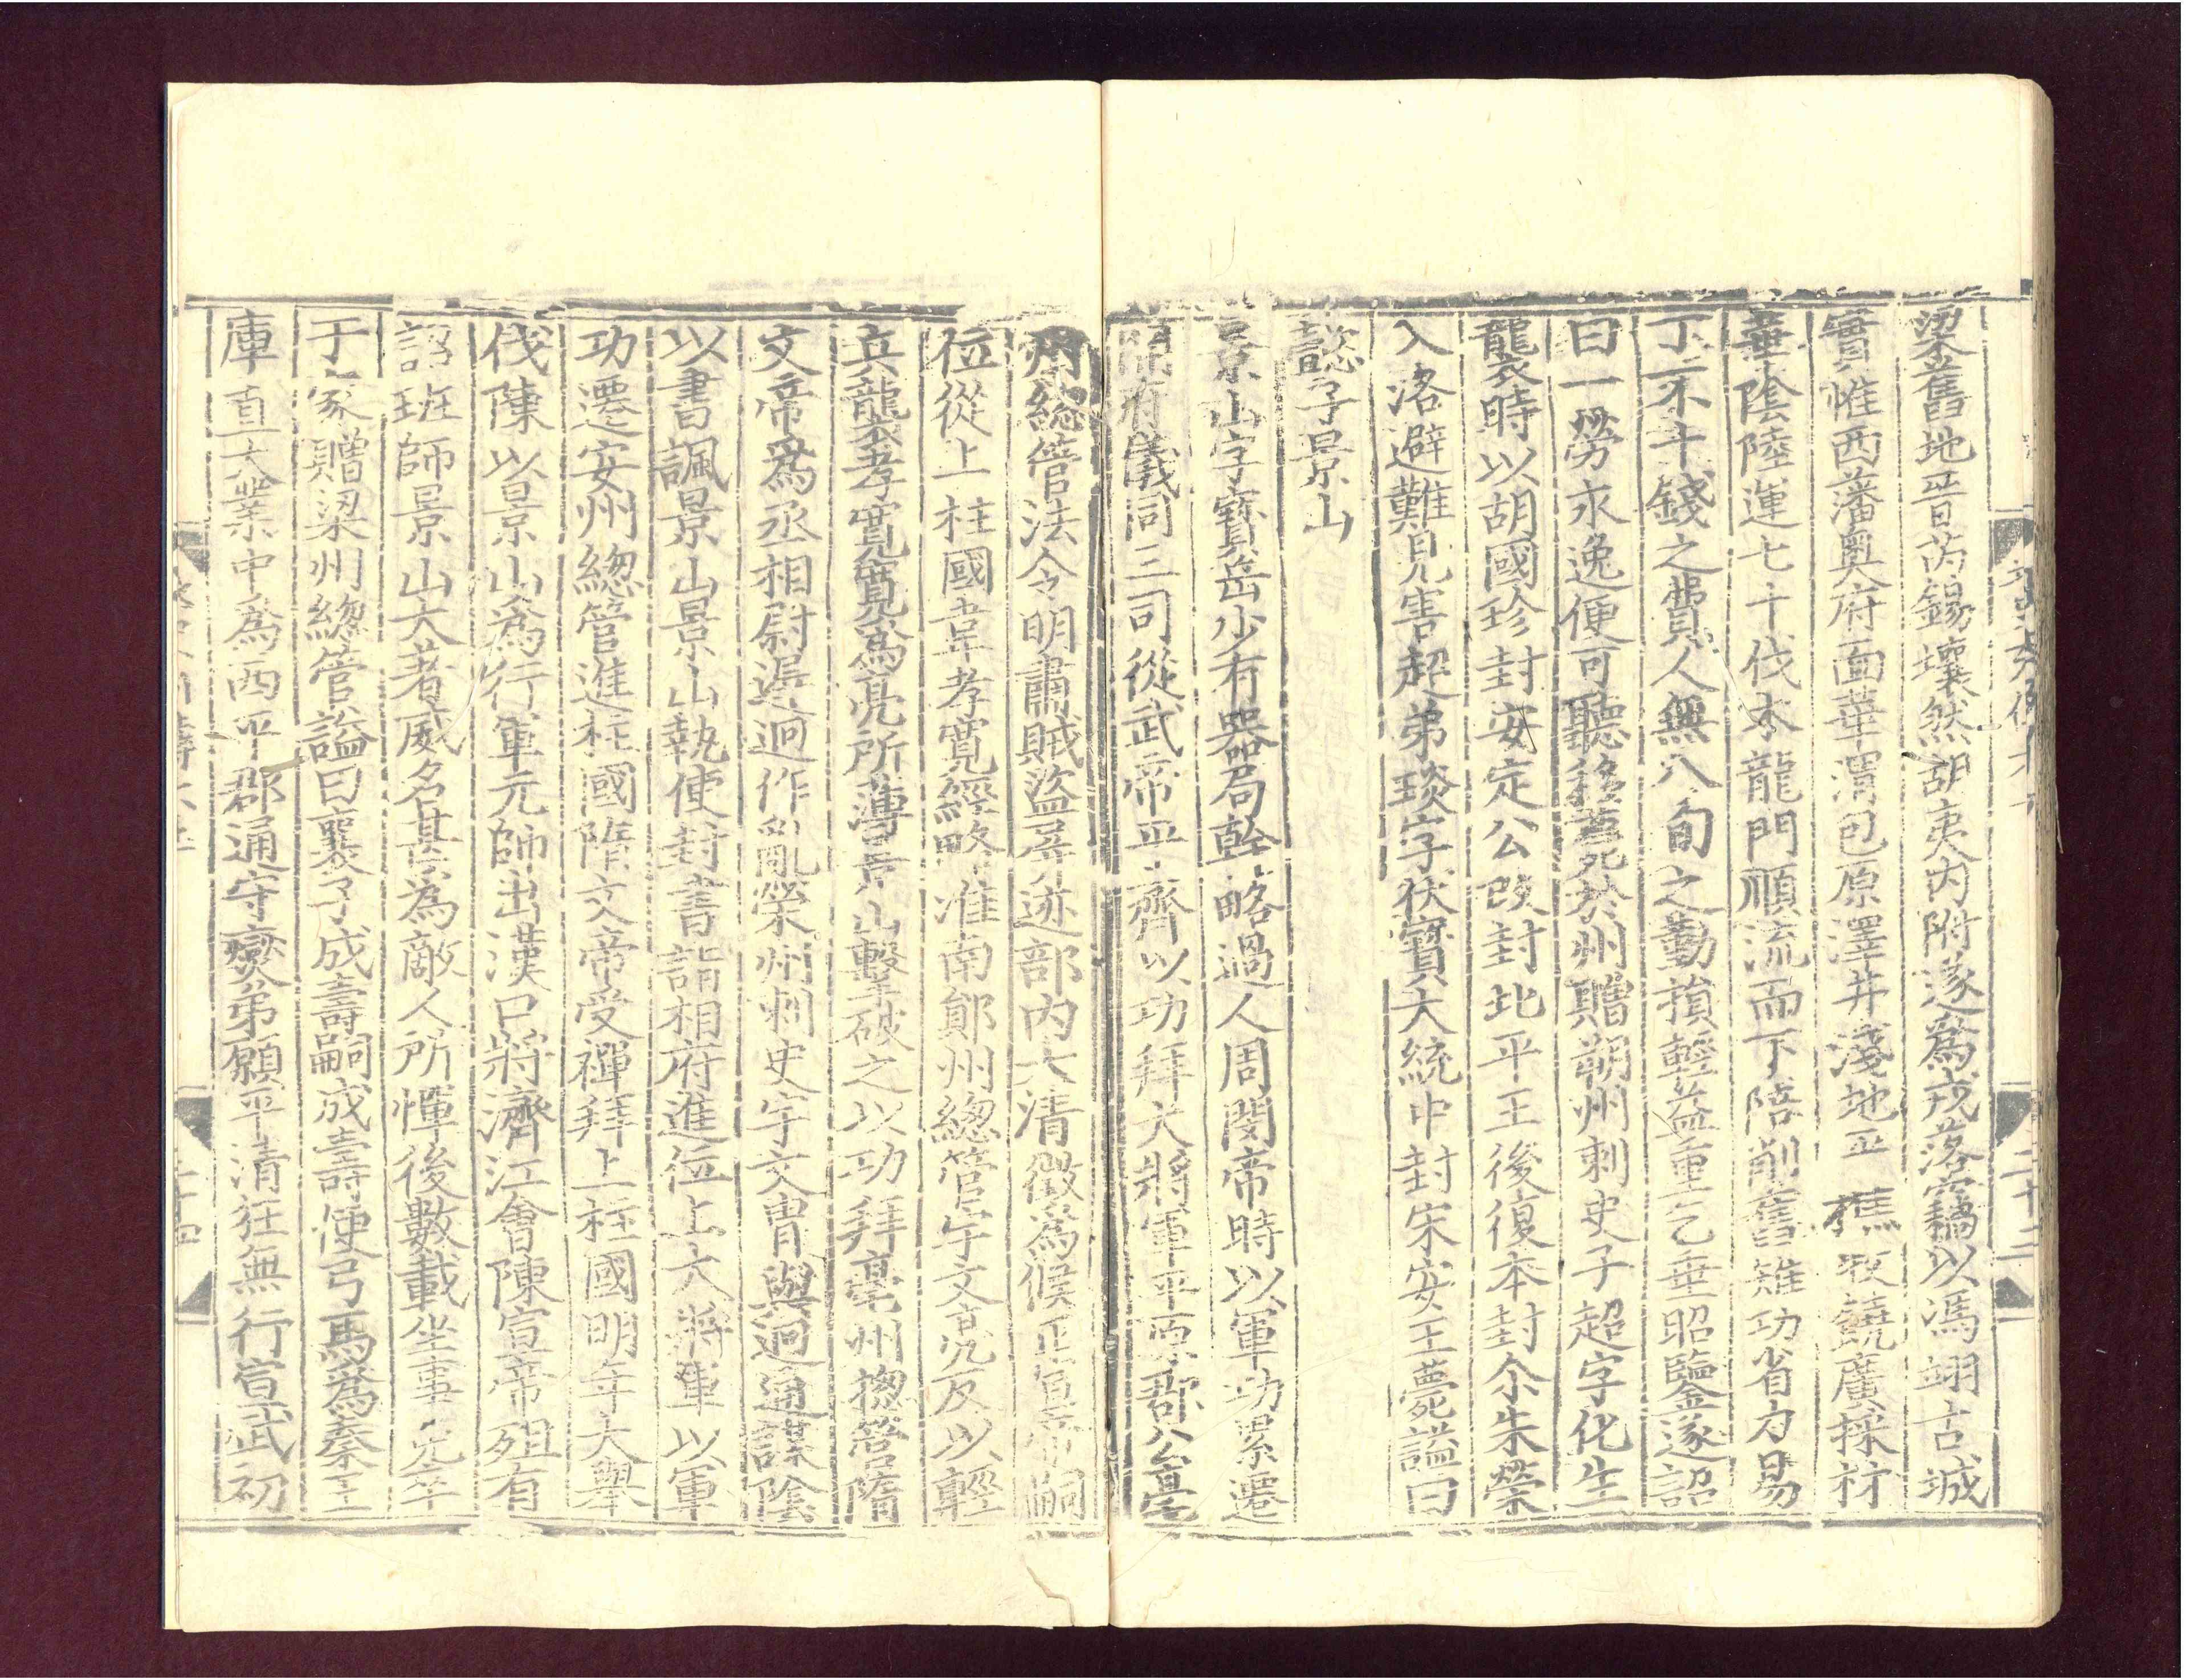 梁舊地晉芮錫壤然胡夷内附遂爲戎落竊以馮翊古城
實惟西藩奥府面華渭包原澤井淺地平樵牧饒廣採材
華陰陸運七十伐木龍門順流而下陪削舊雉功省力易
丁不十錢之費人無八旬之勤損輕益重乞垂昭鑒遂詔
曰一勞永逸便可聽移薨於州贈朔州刺史子超字化生
襲衣時以胡國珍封安定公改封北平王後復本封尒朱榮
入洛避難見害超弟琰字伏寶大統中封宋安王薨謚曰
懿子景山
景山字寶岳少有器局幹略過人周閔帝時以軍功累遷
開府儀同三司從武帝平齊以功拜大將軍平原郡公亳
州緫管法令明肅賊盜屏迹部内大清徵爲候正宣帝嗣
位從上柱國韋孝寬經略淮南鄖州緫管宇文亮反以輕
兵襲孝寬寬爲亮所薄景山擊破之以功拜亳州揔管隋
文帝爲丞相尉遲迥作亂榮州刺史宇文胄與迥通謀陰
以書諷景山景山執使封書詣相府進位上大將軍以軍
功遷安州緫管進柱國隋文帝受禪拜上柱國明年大舉
伐陳以景山爲行軍元帥出漢口將濟江會陳宣帝殂有
詔班師景山大著威名甚爲敵人所憚後數載坐事免卒
于家贈梁州緫管謚曰襄子成壽嗣成壽便弓馬爲秦王
庫直大業中爲西平郡通守燮弟願平清狂無行宣武初